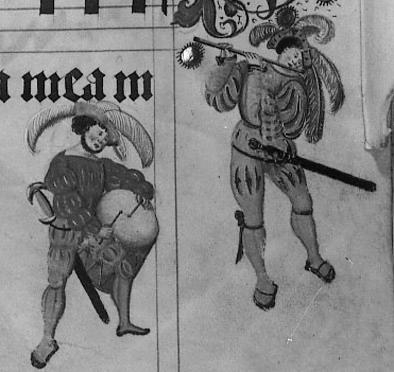 a mea m